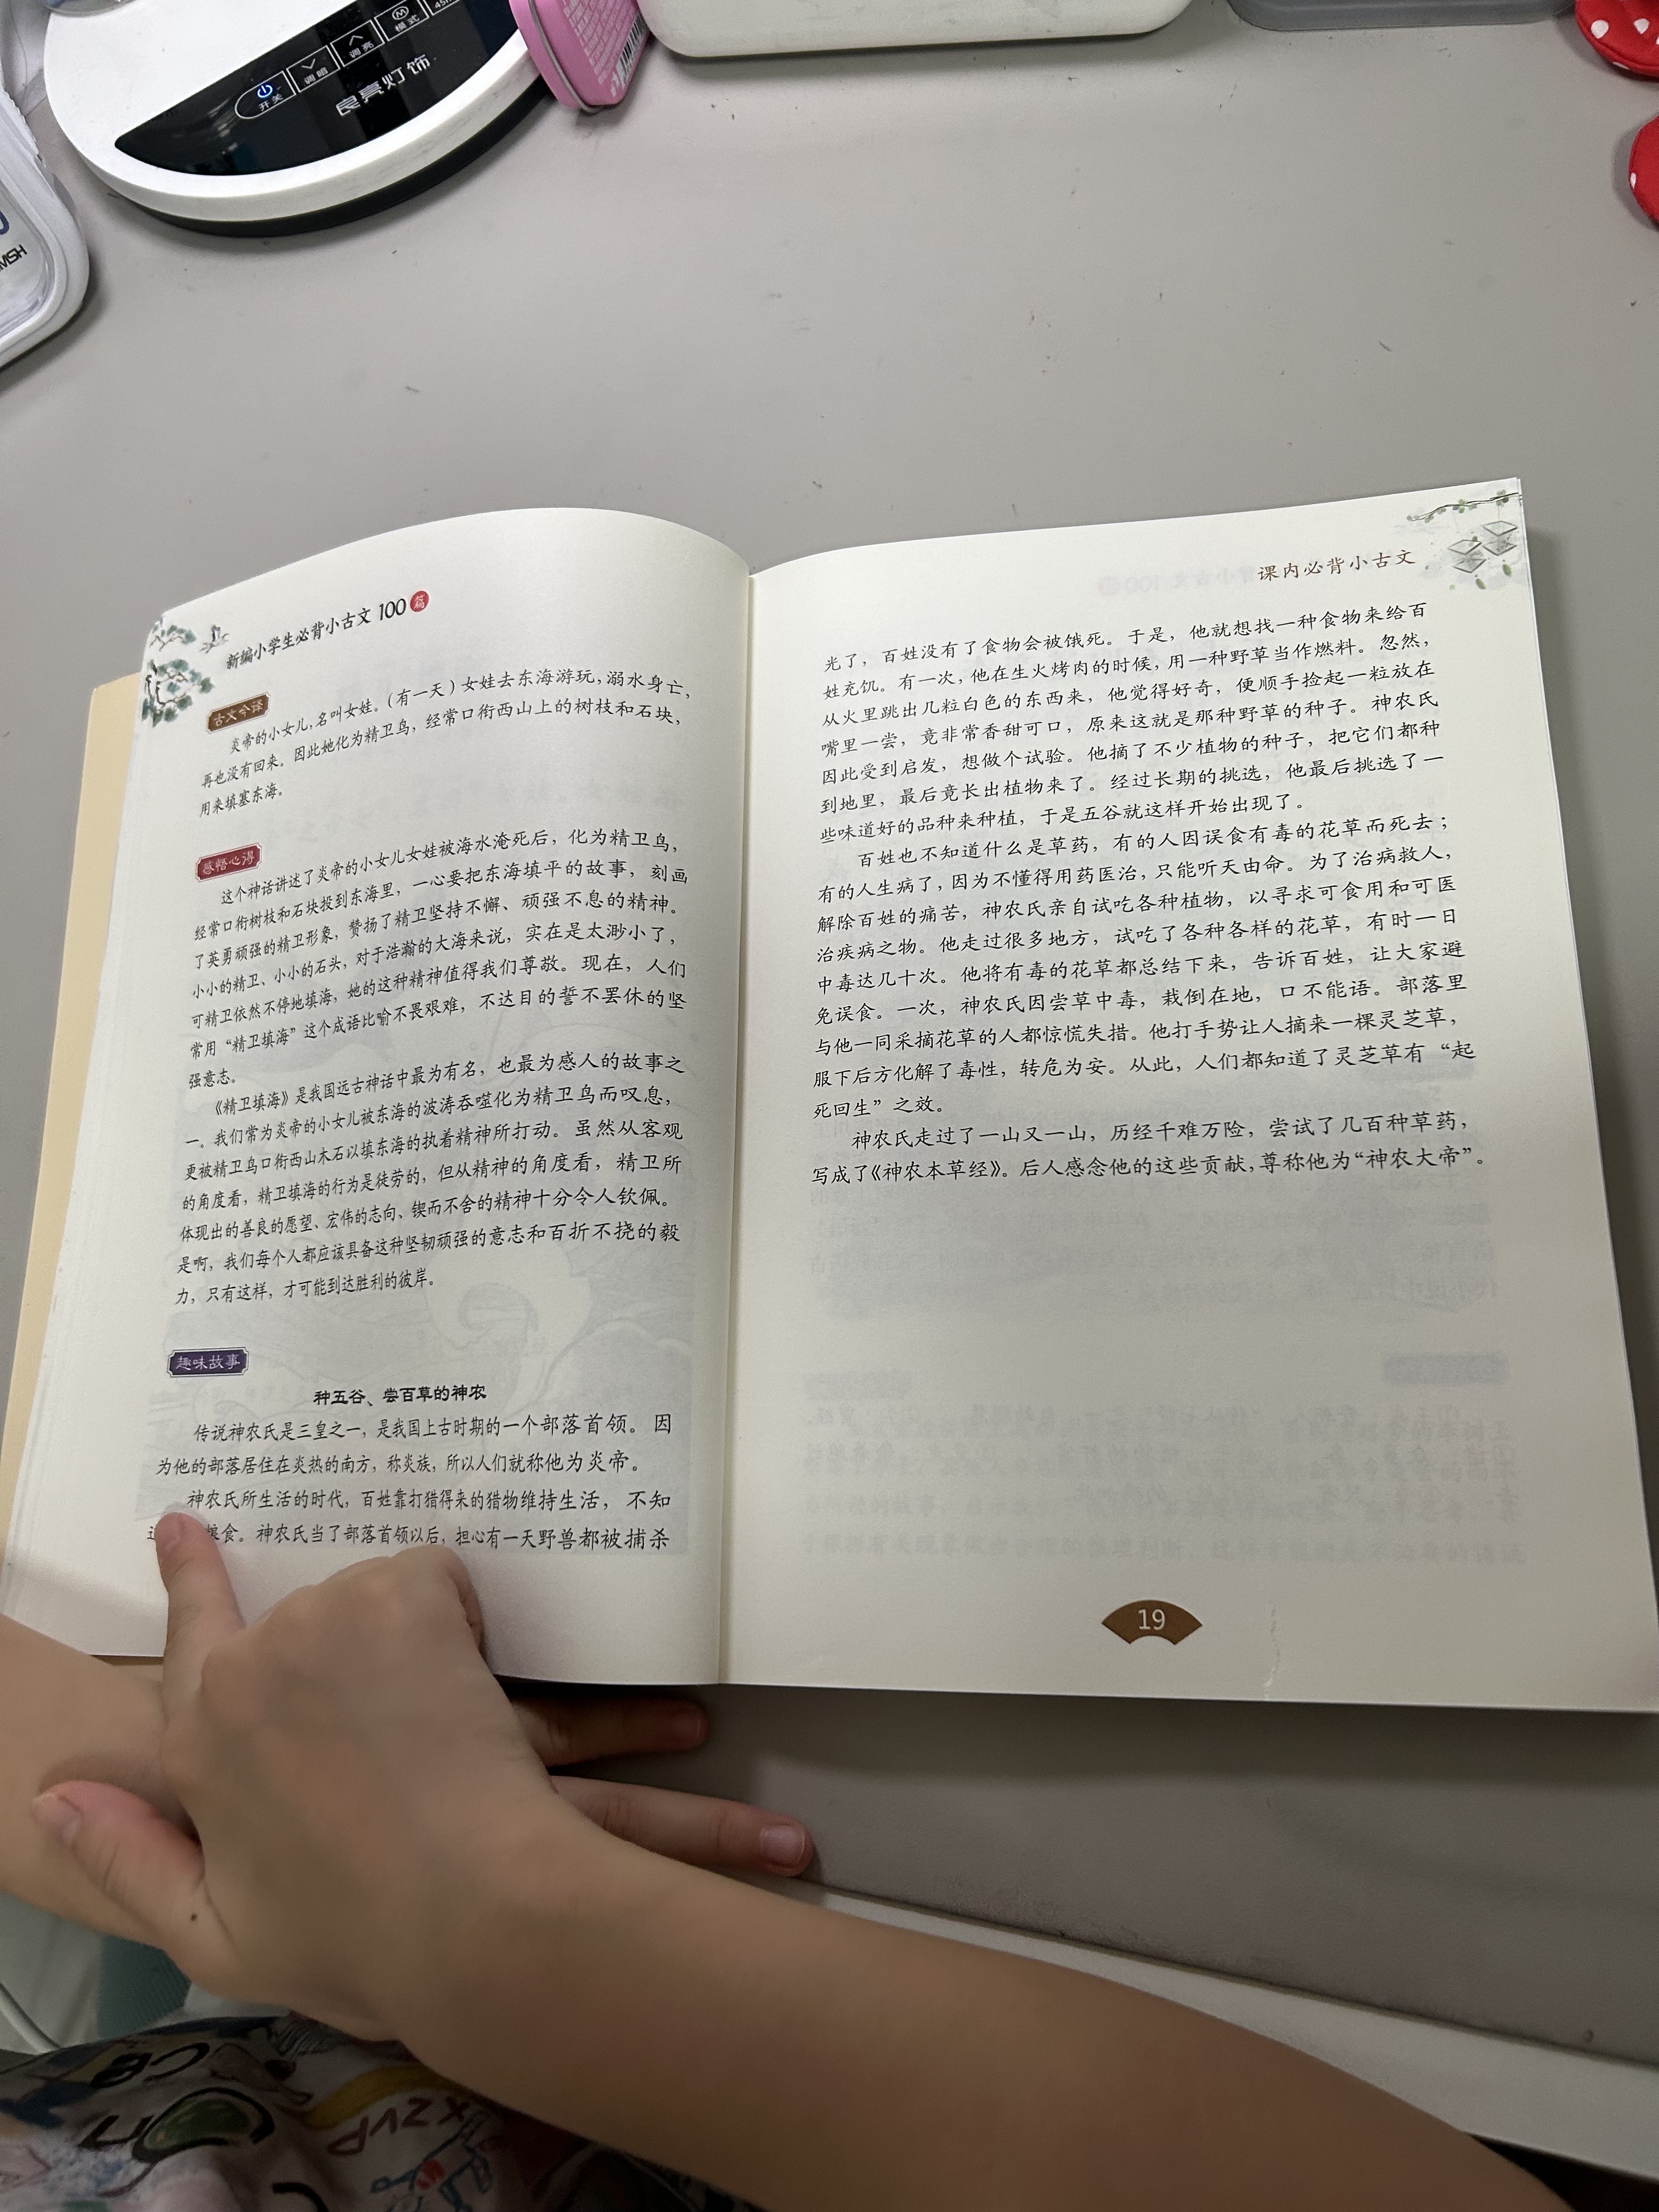 开关
调暗
调亮
M
模式
良亮灯饰
MSH
新编小学生必背小古文100篇
古文今译
炎帝的小女儿,名叫女娃。(有一天)女娃去东海游玩,溺水身亡,
再也没有回来。因此她化为精卫鸟,经常口衔西山上的树枝和石块,
用来填塞东海。
感悟心得
这个神话讲述了炎帝的小女儿女娃被海水淹死后,化为精卫鸟,
经常口衔树枝和石块投到东海里,一心要把东海填平的故事,刻画
了英勇顽强的精卫形象,赞扬了精卫坚持不懈、顽强不息的精神。
小小的精卫、小小的石头,对于浩瀚的大海来说,实在是太渺小了,
可精卫依然不停地填海,她的这种精神值得我们尊敬。现在,人们
常用“精卫填海”这个成语比喻不畏艰难,不达目的誓不罢休的坚
强意志。
《精卫填海》是我国远古神话中最为有名,也最为感人的故事之
一。我们常为炎帝的小女儿被东海的波涛吞噬化为精卫鸟而叹息,
更被精卫鸟口衔西山木石以填东海的执着精神所打动。虽然从客观
的角度看,精卫填海的行为是徒劳的,但从精神的角度看,精卫所
体现出的善良的愿望、宏伟的志向、锲而不舍的精神十分令人钦佩。
是啊,我们每个人都应该具备这种坚韧顽强的意志和百折不挠的毅
力,只有这样,才可能到达胜利的彼岸。
趣味故事
种五谷、尝百草的神农
传说神农氏是三皇之一,是我国上古时期的一个部落首领。因
为他的部落居住在炎热的南方,称炎族,所以人们就称他为炎帝。
神农氏所生活的时代,百姓靠打猎得来的猎物维持生活,不知
粮食。神农氏当了部落首领以后,担心有一天野兽都被捕杀
课内必背小古文
光了,百姓没有了食物会被饿死。于是,他就想找一种食物来给百
姓充饥。有一次,他在生火烤肉的时候,用一种野草当作燃料。忽然,
从火里跳出几粒白色的东西来,他觉得好奇,便顺手捡起一粒放在
嘴里一尝,竟非常香甜可口,原来这就是那种野草的种子。神农氏
因此受到启发,想做个试验。他摘了不少植物的种子,把它们都种
到地里,最后竟长出植物来了。经过长期的挑选,他最后挑选了一
些味道好的品种来种植,于是五谷就这样开始出现了。
百姓也不知道什么是草药,有的人因误食有毒的花草而死去;
有的人生病了,因为不懂得用药医治,只能听天由命。为了治病救人,
解除百姓的痛苦,神农氏亲自试吃各种植物,以寻求可食用和可医
治疾病之物。他走过很多地方,试吃了各种各样的花草,有时一日
中毒达几十次。他将有毒的花草都总结下来,告诉百姓,让大家避
免误食。一次,神农氏因尝草中毒,栽倒在地,口不能语。部落里
与他一同采摘花草的人都惊慌失措。他打手势让人摘来一棵灵芝草,
服下后方化解了毒性,转危为安。从此,人们都知道了灵芝草有“起
死回生”之效。
神农氏走过了一山又一山,历经千难万险,尝试了几百种草药,
写成了《神农本草经》。后人感念他的这些贡献,尊称他为“神农大帝”。
19